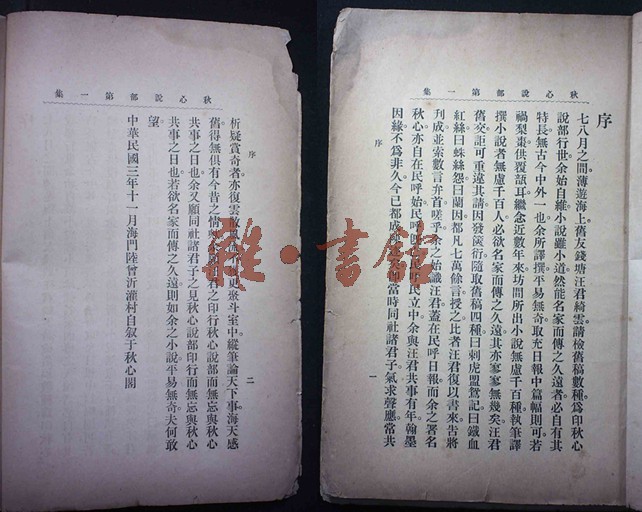 集一第部說心秋
序
七八月之間薄遊海上舊友錢塘汪君綺雲請檢舊稿數種爲印秋心
說部行世余始自維小說雖小道然能名家而傳之久遠者必自有其
特長無古今中外一也余所譯撰平易無奇取充日報中篇幅則可若
禍梨棗供覆瓿耳繼念近數年來坊間所出小說無慮千百種執筆譯
撰小說者無慮千百人必欲名家而傳之久遠其亦寥寥無幾矣汪君
舊交詎可重違其請因發篋衍隨取舊稿四種曰刺虎盟鴛記曰鐵血
紅絲曰蛛絲怨曰蘭因都凡七萬餘言授之比者汪君復以書來告將
刋成並索數言弁首嗟乎余之始識汪君蓋在民呼日報而余之署名
秋心亦自在民呼始民呼民立中余與汪君共事有年翰墨
因緣不爲非久今已都成 當時同社諸君子氣求聲應常共
序
一
集一第部說心秋
析疑賞奇者亦復雲散 更聚斗室中縱筆論天下事海天感
舊得無俱有今昔之情 君之印行秋心說部而無忘與秋心
共事之日也余又願同社諸君子之見秋心說部印行而無忘與秋心
共事之日也若欲名家而傳之久遠則如余之小說平易無奇夫何敢
望
中華民國三年十一月海門陸曾沂灌村自叙于秋心閣
序
二
書館